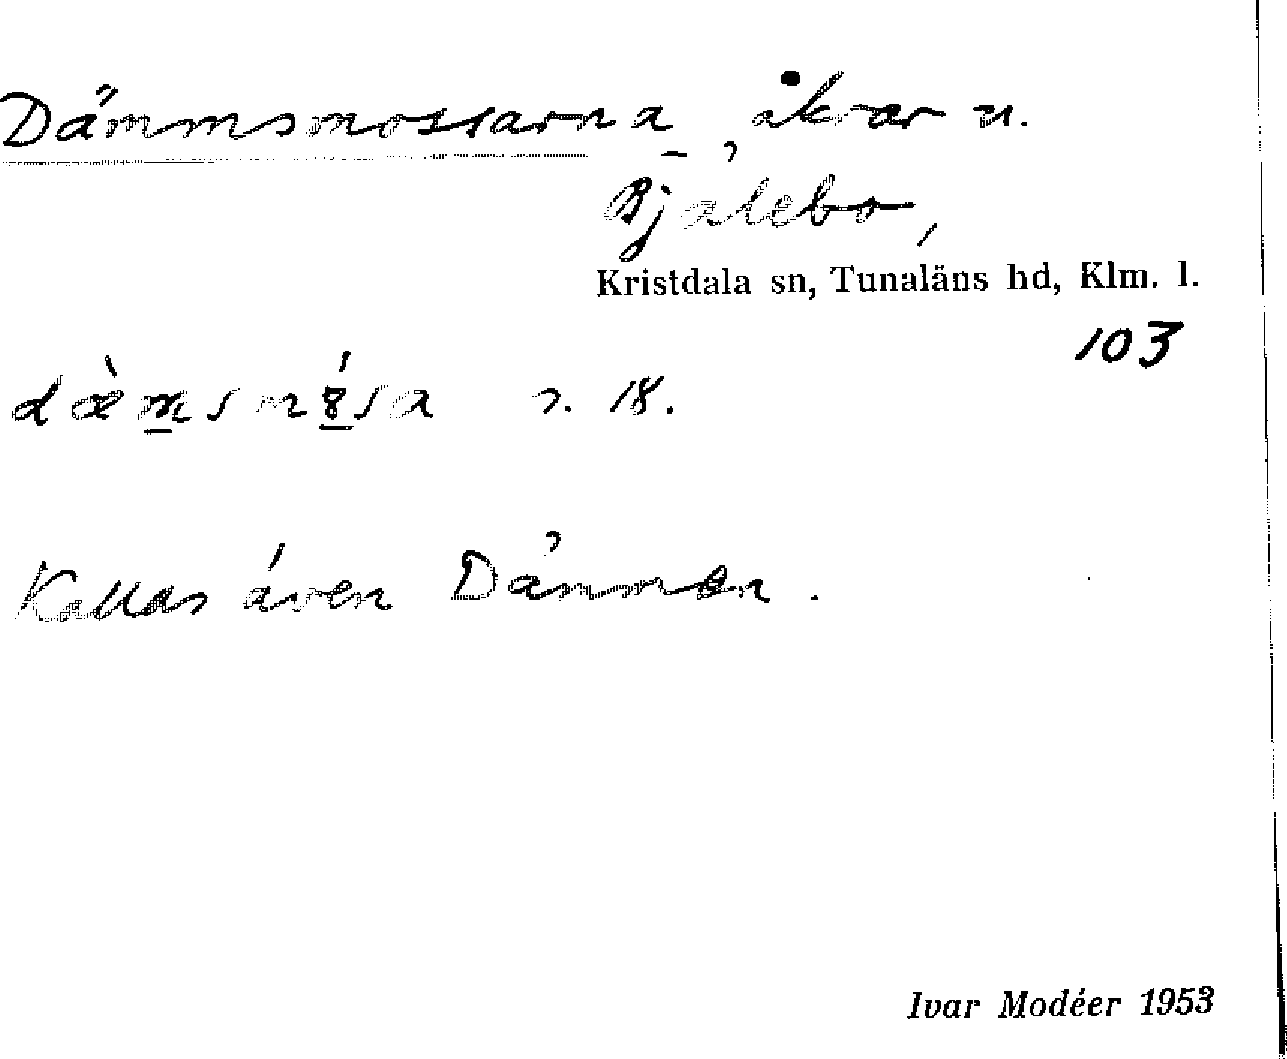 Dämmsmossarna, åkrar u.
Bjälebo,
Kristdala sn, Tunaläns hd, Klm. l.
103
18.
Kallas även Dämmen.
Ivar Modéer 1953